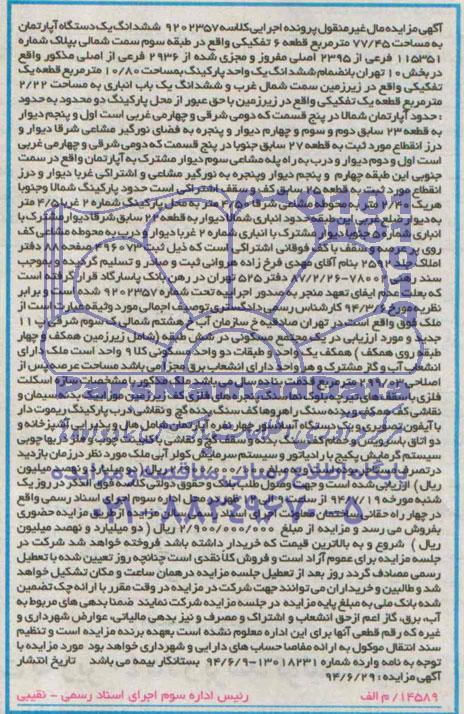 آگهی مزایده مال غیر منقول پرونده اجرایی کلاسه ۹۲۰۲۳۵۷ ششدانگ یک دستگاه آپارتمان
به مساحت ۷۷/۴۵ مترمربع قطعه ۶ تفکیکی واقع در طبقه سوم سمت شمالی بپلاک شماره
۱۱۵۳۵۱ فرعی از ۲۳۹۵ اصلی مفروز و مجزی شده از ۲۹۳۶ فرعی از اصلی مذکور واقع
در بخش ۱۰ تهران بانضمام ششدانگ یک واحد پارکینگ بمساحت ۱۰/۸۰ مترمربع قطعه یک
تفکیکی واقع در زیرزمین سمت شمال غرب و ششدانگ یک باب انباری به مساحت ۲/۲۲
مترمربع قطعه یک تفکیکی واقع در زیرزمین با حق عبور از محل پارکینگ دو محدود به حدود
: حدود آپارتمان شمالا در پنج قسمت که دومی شرقی و چهارمی غربی است اول و پنجم دیوار
به قطعه ۲۳ سابق دوم و سوم و چهارم دیوار و پنجره به فضای نورگیر مشاعی شرقا دیوار و
درز انقطاع مورد ثبت به قطعه ۲۷ سابق جنوبا در پنج قسمت که دومی شرقی و چهارمی غربی
است اول و دوم دیوار و درب به راه پله مشاعی سوم دیوار مشترک به آپارتمان واقع در سمت
جنوبی این طبقه چهارم و پنجم دیوار وپنجره به نورگیر مشاعی و اشتراکی غربا دیوار و درز
انقطاع مورد ثبت به قطعه ۲۵ سابق کف و سقف اشتراکی است حدود پارکینگ شمالا وجنوبا
هریک ۲/۴۰ متر به محوطه مشاعی شرقا ۴/۵۰ متر به محل پارکینگ شماره ۲ غربا ۴/۵ متر
به دیوار ضلع غربی این طبقه حدود انباری شمالا دیوار به قطعه ۲۴ سابق شرقا دیوار مشترک با
انباری شماره ۵ جنوبا دیوار مشترک با انباری شماره ۲ غربا دیوار و درب به محوطه مشاعی کف
روی پی عرصه و سقف با کف فوقانی اشتراکی است که ذیل ثبت ۶۰۷۳ صفحه ۸۸ دفتر
املاک جلد ۲۵۹۲ بنام آقای مهدی فرخ زاده هروانی ثبت و صادر و تسلیم گردیده و بموجب
سند رهنی ۷۸۰۵-۸۷/۲/۲۶ دفتر ۵۲۵ تهران در رهن بانک پاسارگاد قرار گرفته است
که بعلت عدم ایفای تعهد منجر به صدور اجراییه تحت شماره ۹۲۰۲۳۵۷ شده است و برابر
نظریه مورخ ۹۴/۳/۶ کارشناس رسمی دادگستری توصیف اجمالی مورد وثیقه عبارت است از
ملک فوق واقع است در تهران صادقیه خ سازمان آب خ هشتم شمالی ک سوم شرقی پ ۱۱
جدید و مورد ارزیابی در یک مجتمع مسکونی در شش طبقه (شامل زیرزمین همکف و چهار
طبقه روی همکف) همکف یک واحد و طبقات دو واحد مسکونی کلا ۹ واحد است ملک دارای
انشعاب آب و گاز مشترک و هر واحد دارای انشعاب برق مجزا می باشد مساحت عرصه پس از
اصلاحی ۲۹۹/۰۳ مترمربع قدمت بنا ده سال می باشد ملک مذکور با مشخصات سازه اسکلت
فلزی با سقف های تیرچه بلوک نما سنگ پنجره های فلزی کف زیرزمین موزاییک بدنه سیمان و
نقاشی کف همکف و بدنه سنگ راهروها کف سنگ بدنه گچ و نقاشی درب پارکینگ ریموت دار
با آیفون تصویری و یک دستگاه آسانسور چهار نفره آپارتمان شامل هال و پذیرایی آشپزخانه و
دو اتاق با سرویس و حمام کف سنگ بدنه و سقف گچ و نقاشی با کابینت چوب و فلز و دربها چوبی
سیستم گرمایش پکیج با رادیاتور و سیستم سرمایش کولر آبی ملک مورد نظر در زمان بازدید
در تصرف مستاجر بوده است و به مبلغ ۲/۹۰۰/۰۰۰/۰۰۰ ریال (دو میلیارد و نهصد میلیون
ریال) ارزیابی شده است و جهت وصول طلب بانک و حقوق دولتی کلاسه فوق الذکر در روز یک
شنبه مورخه ۹۴/۰۷/۱۹ از ساعت ۹ صبح الی ۱۲ ظهر در محل اداره سوم اجرای اسناد رسمی واقع
در چهار راه حقانی ساختمان معاونت اجرای اسناد رسمی سالن مزایده از طریق مزایده حضوری
بفروش می رسد و مزایده از مبلغ ۲/۹۰۰/۰۰۰/۰۰۰ ریال (دو میلیارد و نهصد میلیون
ریال) شروع و به بالاترین قیمت که خریدار داشته باشد فروخته خواهد شد شرکت در
جلسه مزایده برای عموم آزاد است و فروش کلا نقدی است چنانچه روز تعیین شده با تعطیل
رسمی مصادف گردد روز بعد از تعطیل جلسه مزایده در همان ساعت و مکان تشکیل خواهد
شد و طالبین و خریداران می توانند جهت شرکت در مزایده در وقت مقرر با ارائه چک تضمین
شده بانک ملی به مبلغ پایه مزایده در جلسه مزایده شرکت نمایند ضمنا بدهی های مربوط به
آب، برق، گاز اعم از حق انشعاب و اشتراک و مصرف و نیز بدهی مالیاتی، عوارض شهرداری و
غیره که رقم قطعی آنها برای این اداره معلوم نشده است بعهده برنده مزایده است و تنظیم
سند انتقال موکول به ارائه مفاصا حساب های دارایی و شهرداری خواهد بود مورد مزایده با
توجه به نامه وارده شماره ۱۳۰۱۸۲۳۱-۹۴/۶/۹ بستانکار بیمه می باشد تاریخ انتشار
آگهی مزایده: ۹۴/۶/۲۹
۱۴۵۸۹/ م الف رئیس اداره سوم اجرای اسناد رسمی - نقیبی